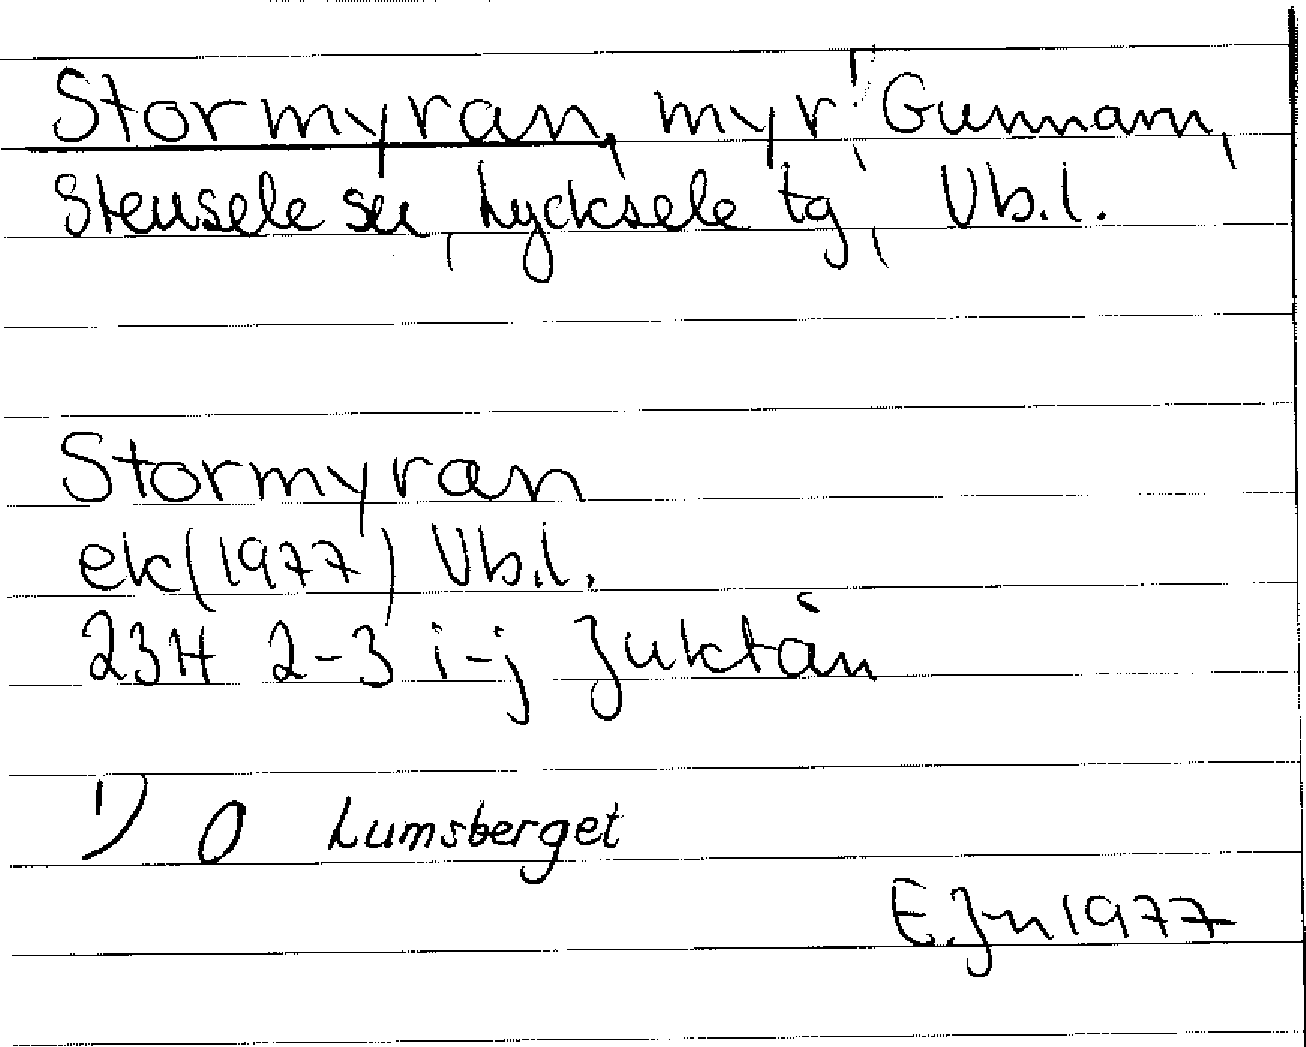 Stormyran, myr¹⁾, Gunnarn,
Stensele sn, Lycksele tg, Vb.l.
Stormyran
ek (1977) Vb.l.
23H 2-3 i-j Juktån
1) O Lumsberget
E.Jn 1977